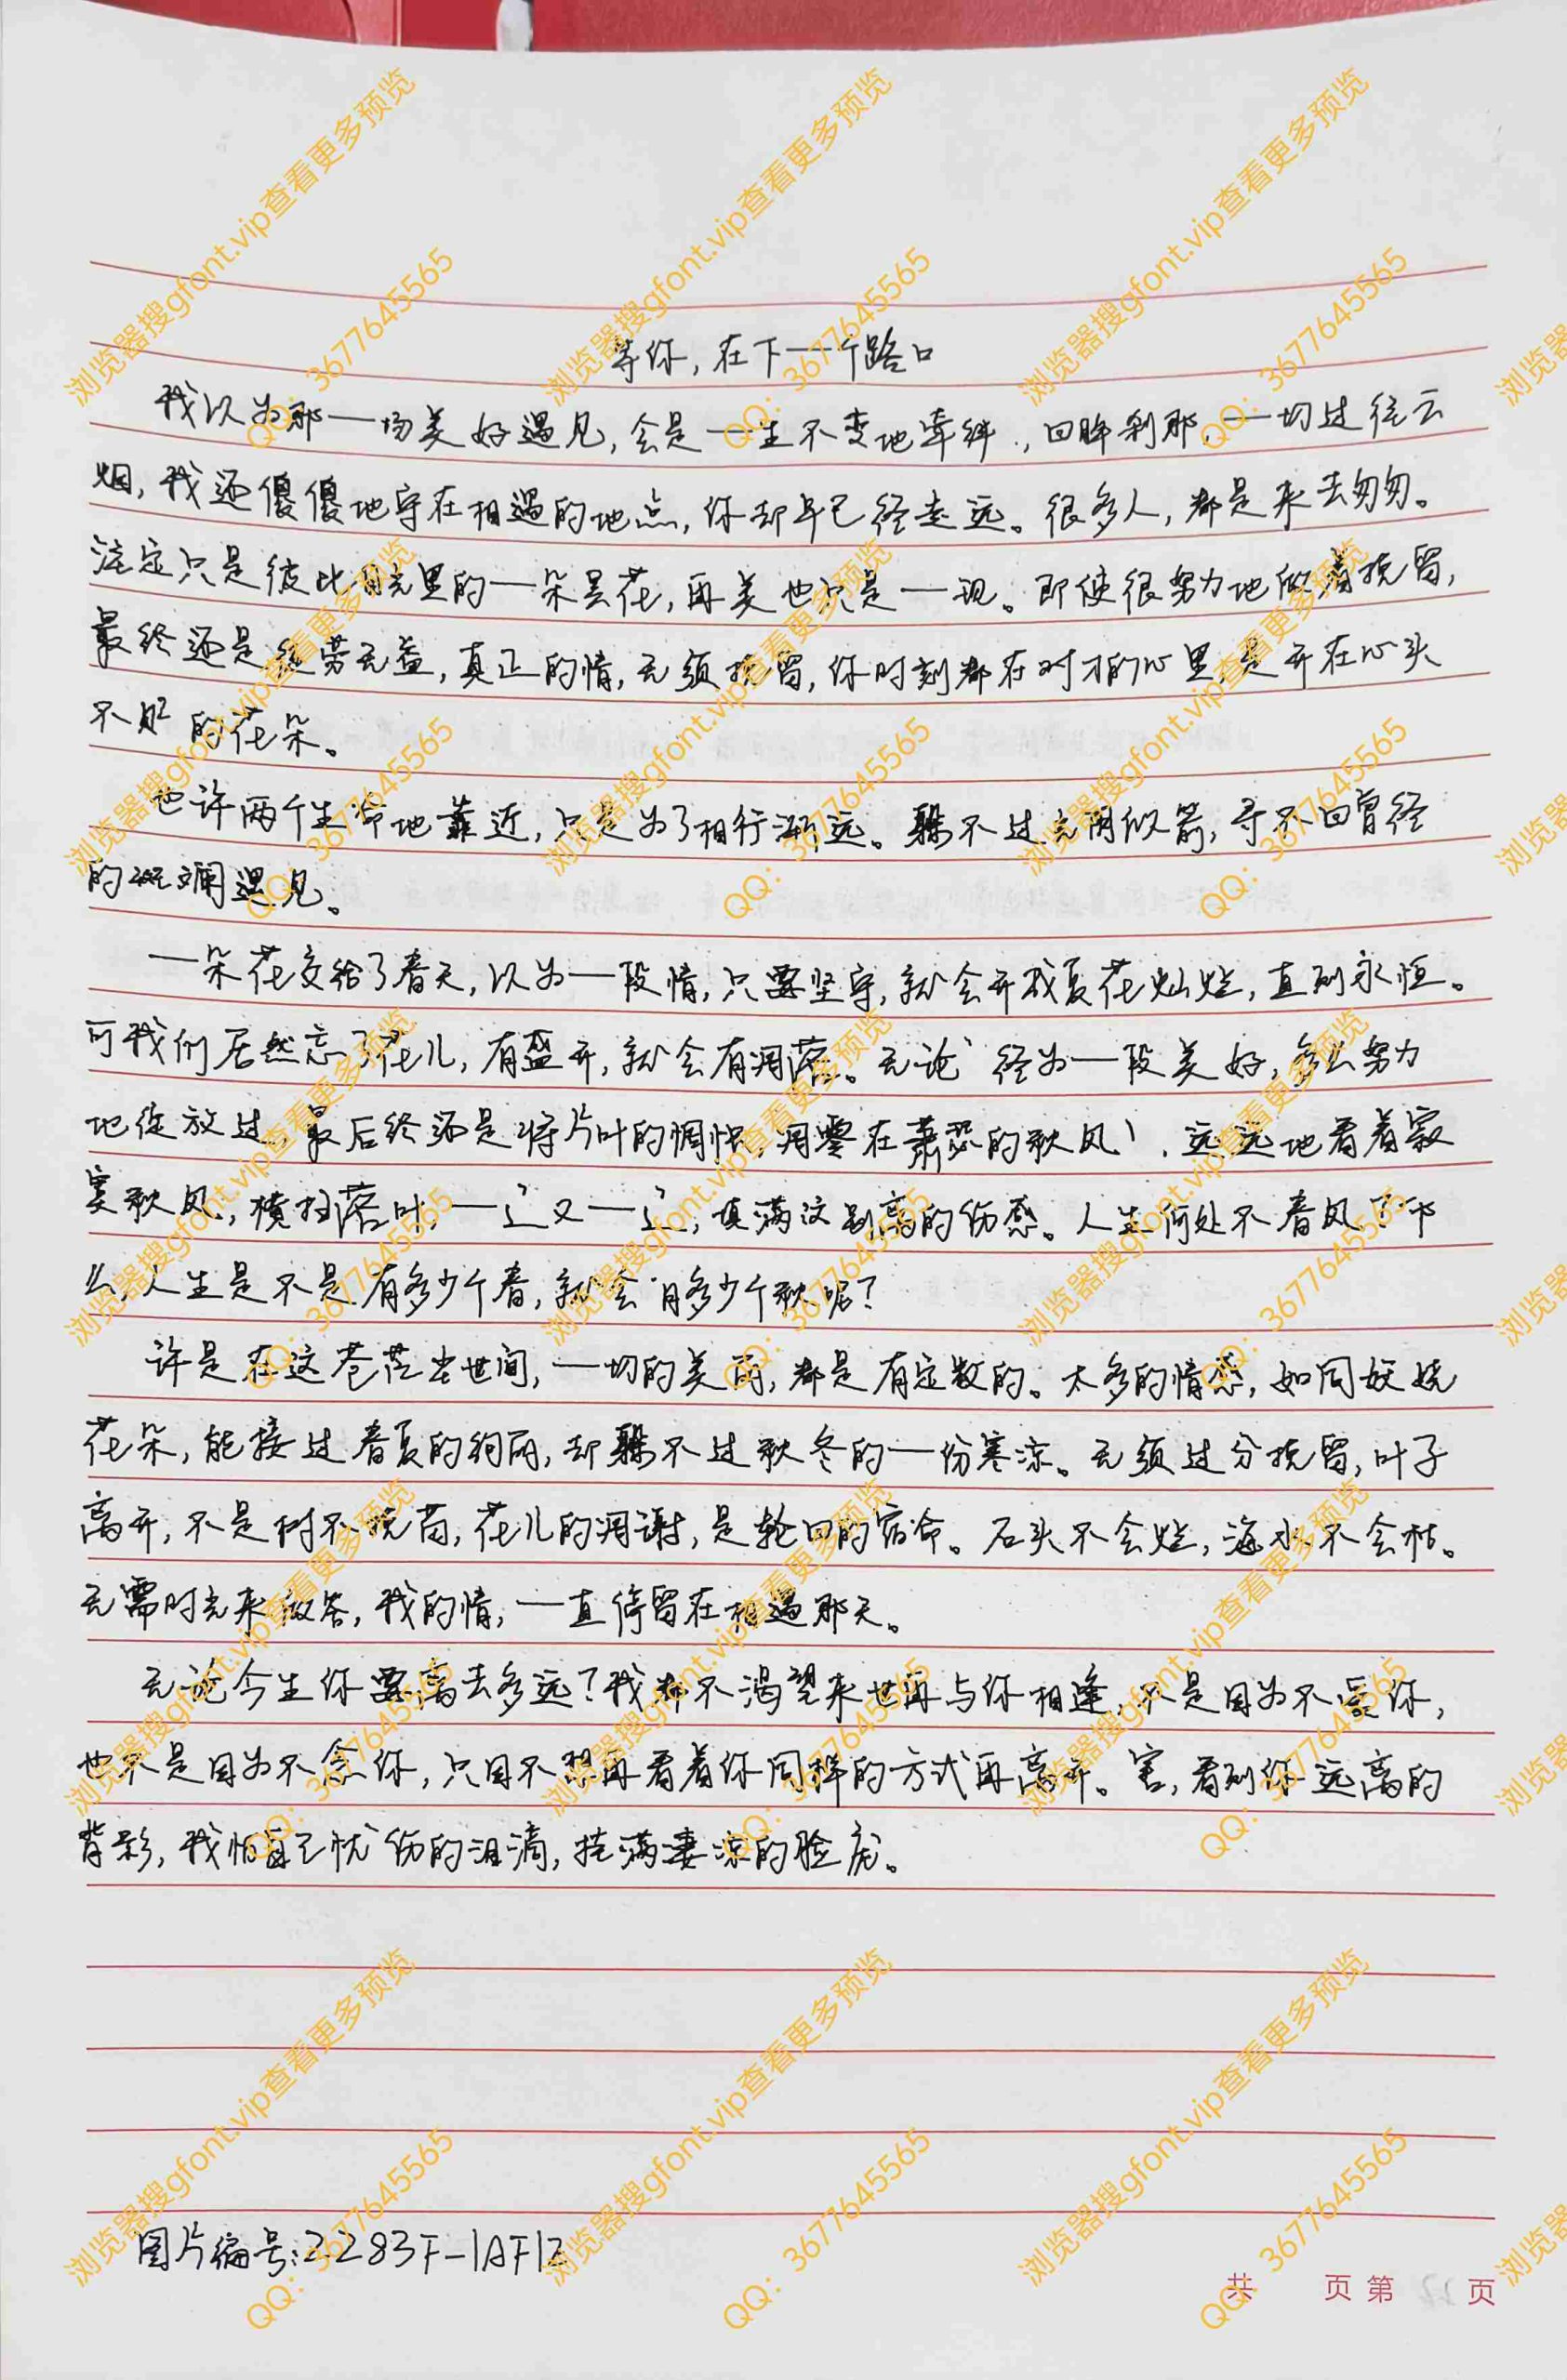 等你，在下一个路口
我以为那一场美好遇见，会是一生不变地牵绊．，回眸刹那，一切过往云
烟，我还傻傻地守在相遇的地点，你却早已经走远。很多人，都是来去匆匆。
注定只是彼此时光里的一朵昙花，再美也只是一现。即使很努力地做着挽留，
最终还是徒劳无益，真正的情，无须挽留，你时刻都在对方的心里，是开在心头
不 的花朵。
也许两个生命地靠近，只是为了相行渐远。躲不过光阴似箭，寻不回曾经
的斑斓遇见。
一朵花交给了春天，以为一段情，只要坚守，就会开成夏花灿烂，直到永恒。
可我们居然忘了花儿，有盛开，就会有凋落。无论 经为一段美好，多么努力
地绽放过，最后终还是将片叶的惆怅，凋零在萧瑟的秋风 ，远远地看着寂
寞秋风，横扫落叶，一 又一 ，填满这别离的伤感。人生何处不春风？那
么，人生是不是有多少个春，就会有多少个秋呢？
许是在这苍茫尘世间，一切的美丽，都是有定数的。太多的情感，如同妖娆
花朵，能接过春夏的绚丽，却躲不过秋冬的一份寒凉。无须过分挽留，叶子
离开，不是树不挽留，花儿的凋谢，是轮回的宿命。石头不会烂，海水不会枯。
无需时光来做答，我的情，一直停留在相遇那天。
无论今生你要离去多远？我都不渴望来世再与你相逢，不是因为不爱你，
也不是因为不念你，只因不想再看着你同样的方式再离开。害，看到你远离的
背影，我怕自己忧伤的泪滴，挂满凄凉的脸庞。
图片编号：2283F-1AF12
共 页 第 页
浏览器搜gfont.vip查看更多预览
QQ：3677645565